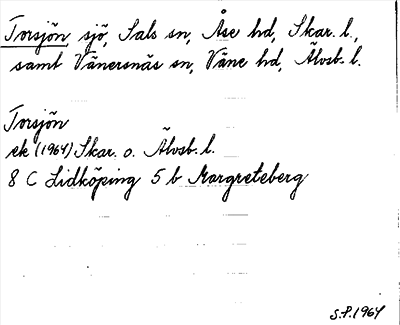 Torsjön, sjö, Sals sn, Åse hd, Skar. l.,
samt Vänersnäs sn, Väne hd, Älvsb. l.
Torsjön
ek (1964) Skar. o. Älvsb. l.
8 C Lidköping 5 b Margreteberg
S.P. 1964